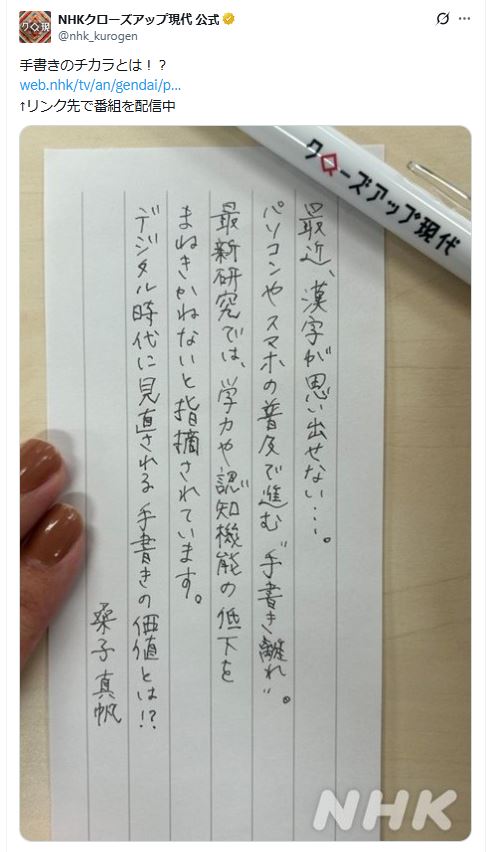 NHKクローズアップ現代 公式
@nhk_kurogen
手書きのチカラとは！？
web.nhk/tv/an/gendai/p...
↑リンク先で番組を配信中
クローズアップ現代
最近、漢字が思い出せない…。
パソコンやスマホの普及で進む“手書き離れ”。
最新研究では、学力や認知機能の低下を
まねきかねないと指摘されています。
デジタル時代に見直される手書きの価値とは!?
桑子真帆
NHK